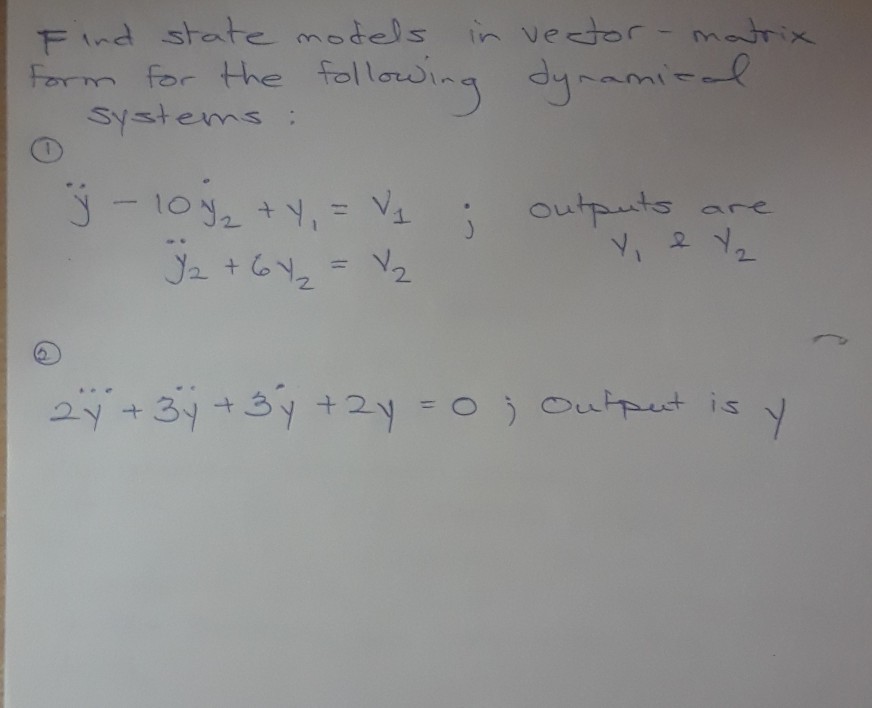 Find state models in vector - matrix
form for the following dynamical
systems :
①
ÿ - 10ẏ₂ + y₁ = v₁ ; outputs are
ÿ₂ + 6y₂ = v₂ y₁ & y₂
②
2y⃛ + 3ÿ + 3ẏ + 2y = 0 ; output is y